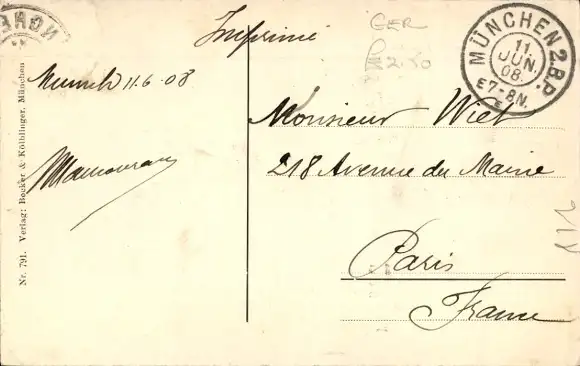 Imprimé
GER
MÜNCHEN 2.B.P.
11.
JUN.
08.
E7-8N.
Munich 11.6.08
Monsieur Wiet
218 Avenue du Maine
Paris
France
Nr. 791. Verlag: Becker & Kölblinger, München